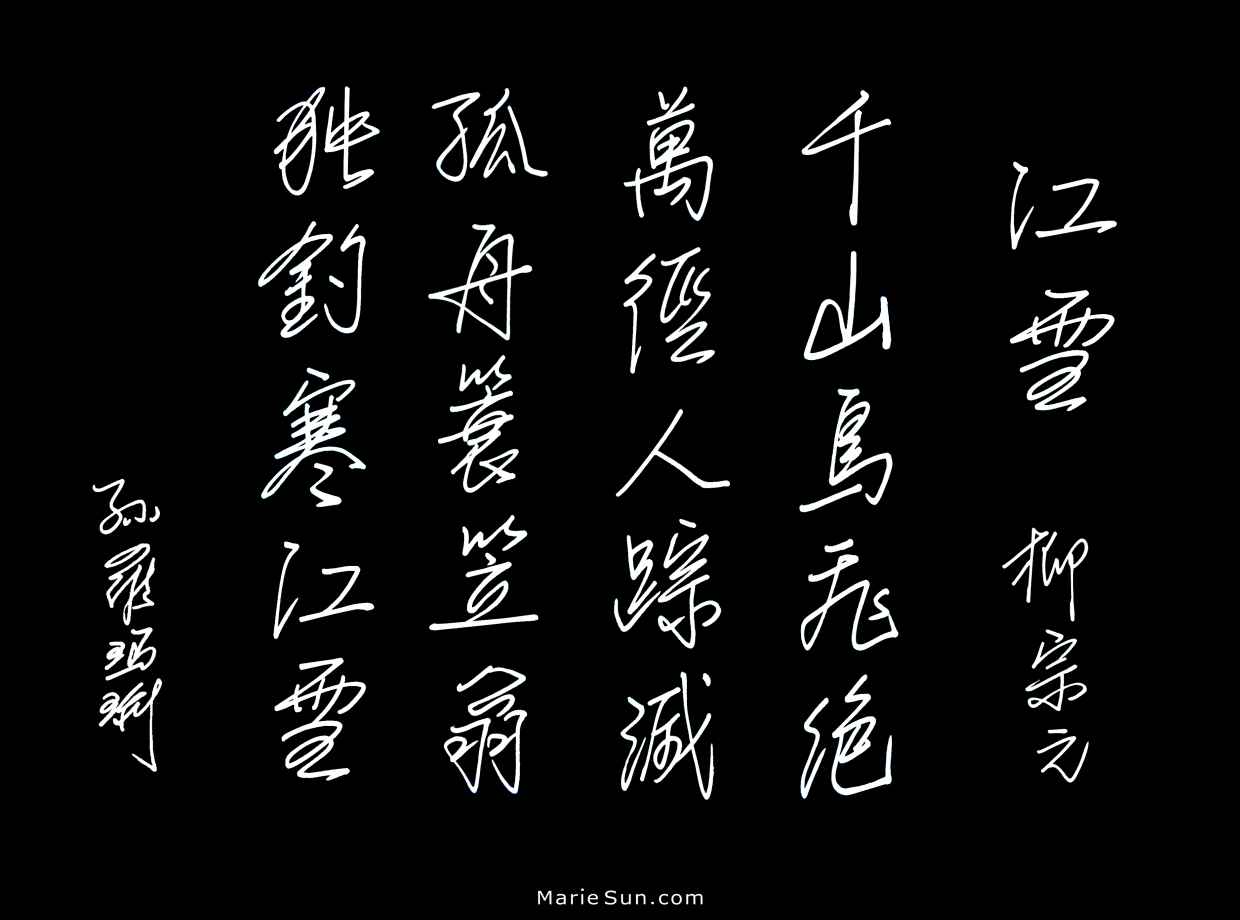 江雪 柳宗元
千山鳥飛絶
萬徑人踪滅
孤舟簑笠翁
独釣寒江雪
孙羅瑪琍
MarieSun.com